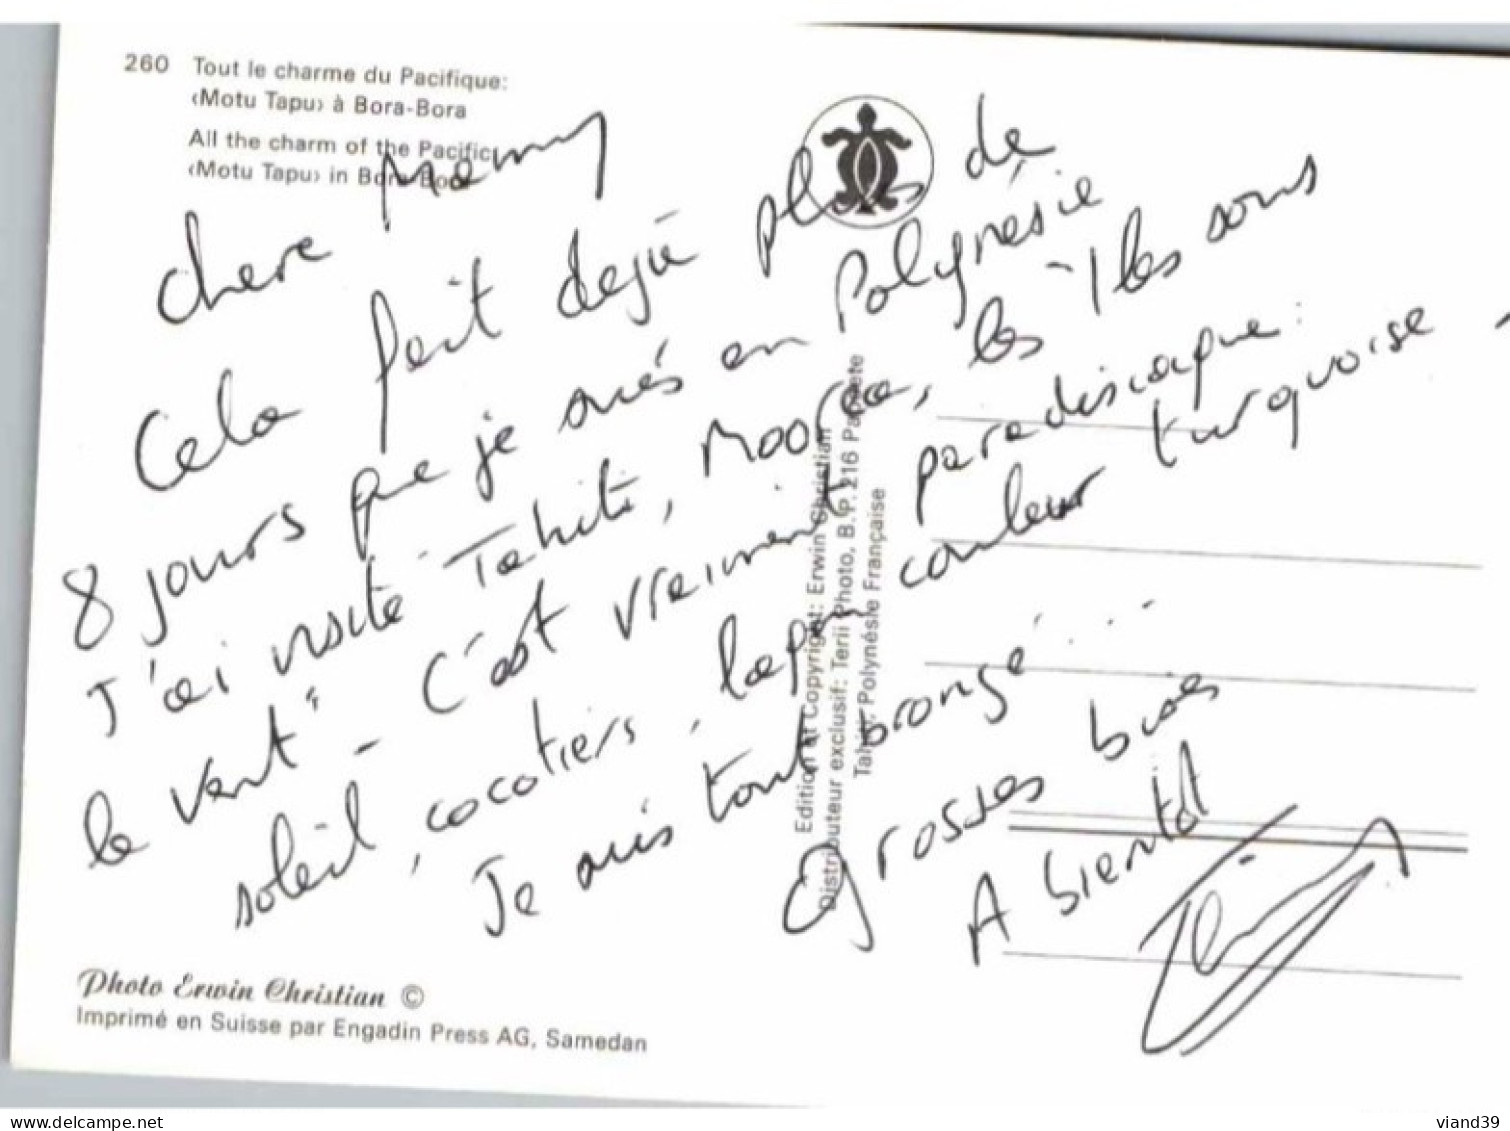 260 Tout le charme du Pacifique:
‹Motu Tapu› à Bora-Bora
All the charm of the Pacific:
‹Motu Tapu› in Bora-Bora
chere Mamy
Cela fait dejà plus de
8 jours que je suis en Polynésie
J'ai visité Tahiti, Moorea, les "Iles sous
le vent" - C'est vraiment paradisiaque:
soleil, cocotiers, lagon couleur turquoise -
Je suis tout bronzé...
Grosses bises
A bientôt
Edition et Copyright: Erwin Christian
Distributeur exclusif: Terii Photo, B.P. 216 Papeete
Tahiti, Polynésie Française
Photo Erwin Christian ©
Imprimé en Suisse par Engadin Press AG, Samedan
www.delcampe.net
viand39